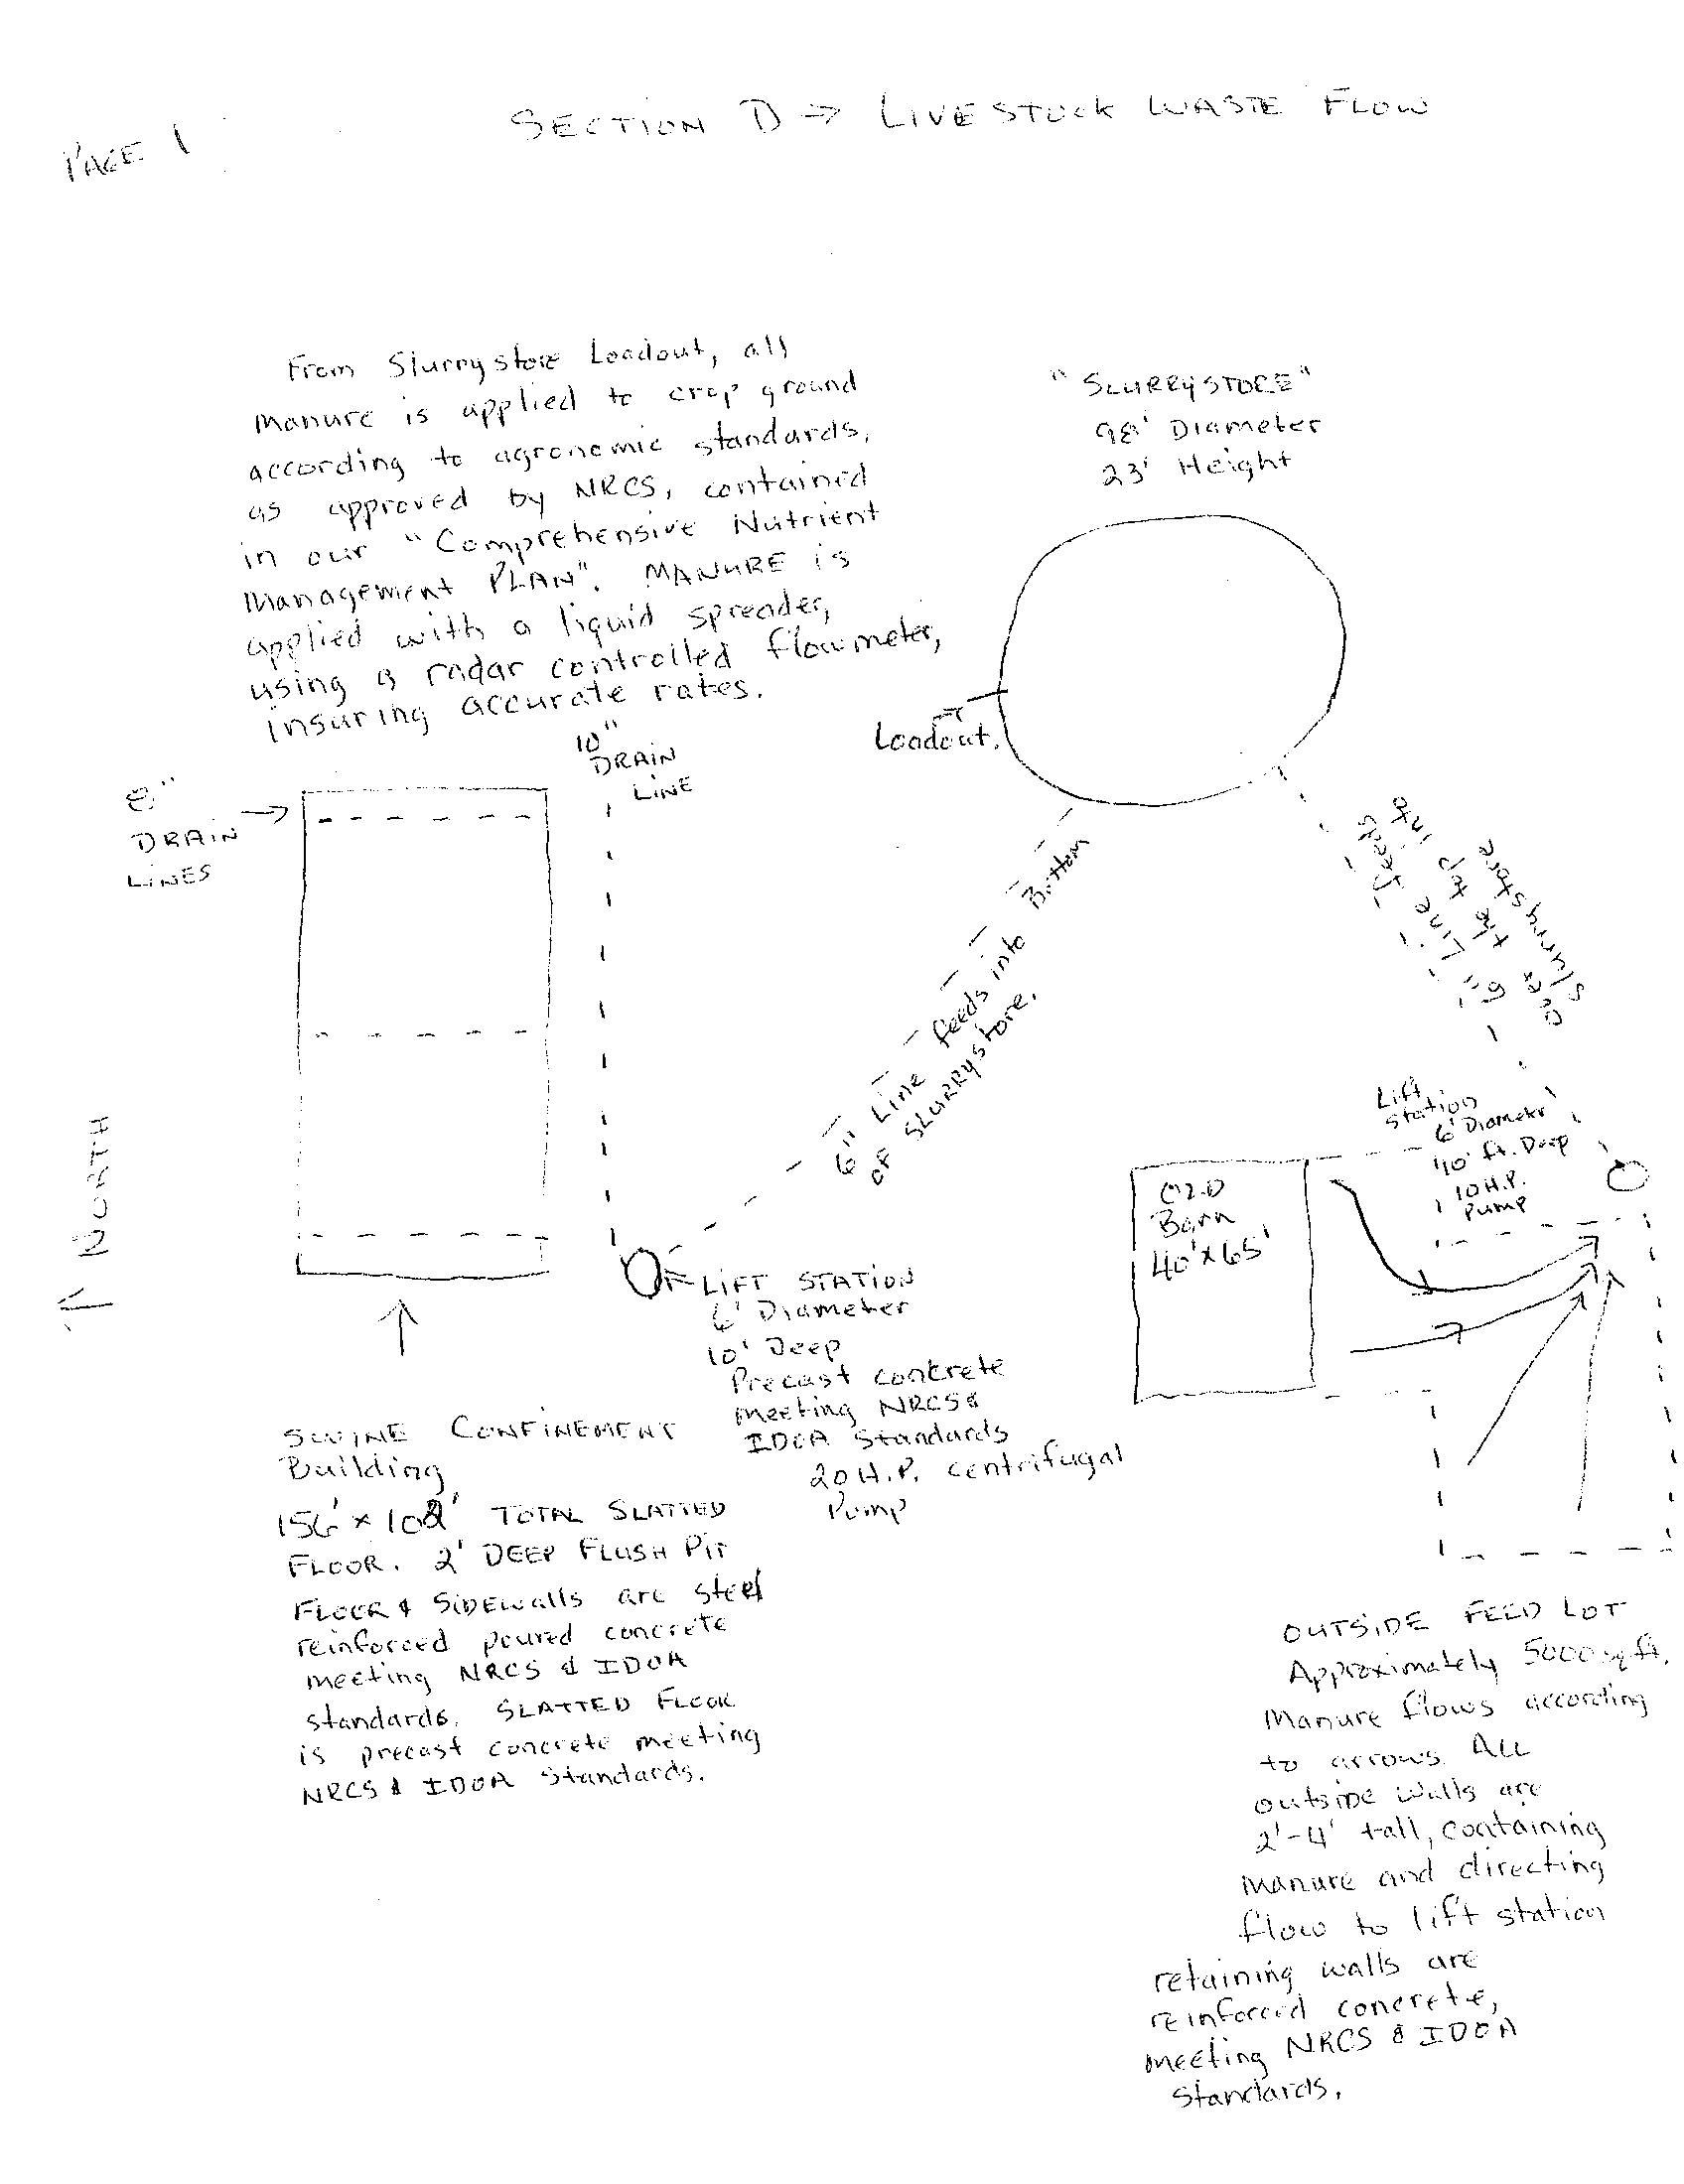 PAGE 1
SECTION D → LIVESTOCK WASTE FLOW
From Slurrystore Loadout, all
manure is applied to crop ground
according to agronomic standards,
as approved by NRCS, contained
in our "Comprehensive Nutrient
Management PLAN". MANURE is
applied with a liquid spreader,
using a radar controlled flowmeter,
insuring accurate rates.
"SLURRYSTORE"
98' Diameter
23' Height
Loadout.
10"
DRAIN
LINE
8"
DRAIN
LINES
6" Line feeds into Bottom
of SLURRYstore.
6" Line feeds
over the top into
slurrystore
↑ NORTH
Lift
Station
6' Diameter
10' ft. Deep
10 H.P.
Pump
OLD
Barn
40'x65'
LIFT STATION
6' Diameter
10' Deep
Precast concrete
meeting NRCS &
IDOA Standards
20 H.P. centrifugal
Pump
SWINE CONFINEMENT
Building
156' x 102' TOTAL SLATTED
FLOOR. 2' DEEP FLUSH PIT
FLOOR & SIDEWALLS are steel
reinforced poured concrete
meeting NRCS & IDOA
standards. SLATTED FLOOR
is precast concrete meeting
NRCS & IDOA Standards.
OUTSIDE FEED LOT
Approximately 5000 sq ft.
Manure flows according
to arrows. ALL
outside walls are
2'-4' tall, containing
manure and directing
flow to lift station
retaining walls are
reinforced concrete,
meeting NRCS & IDOA
Standards.